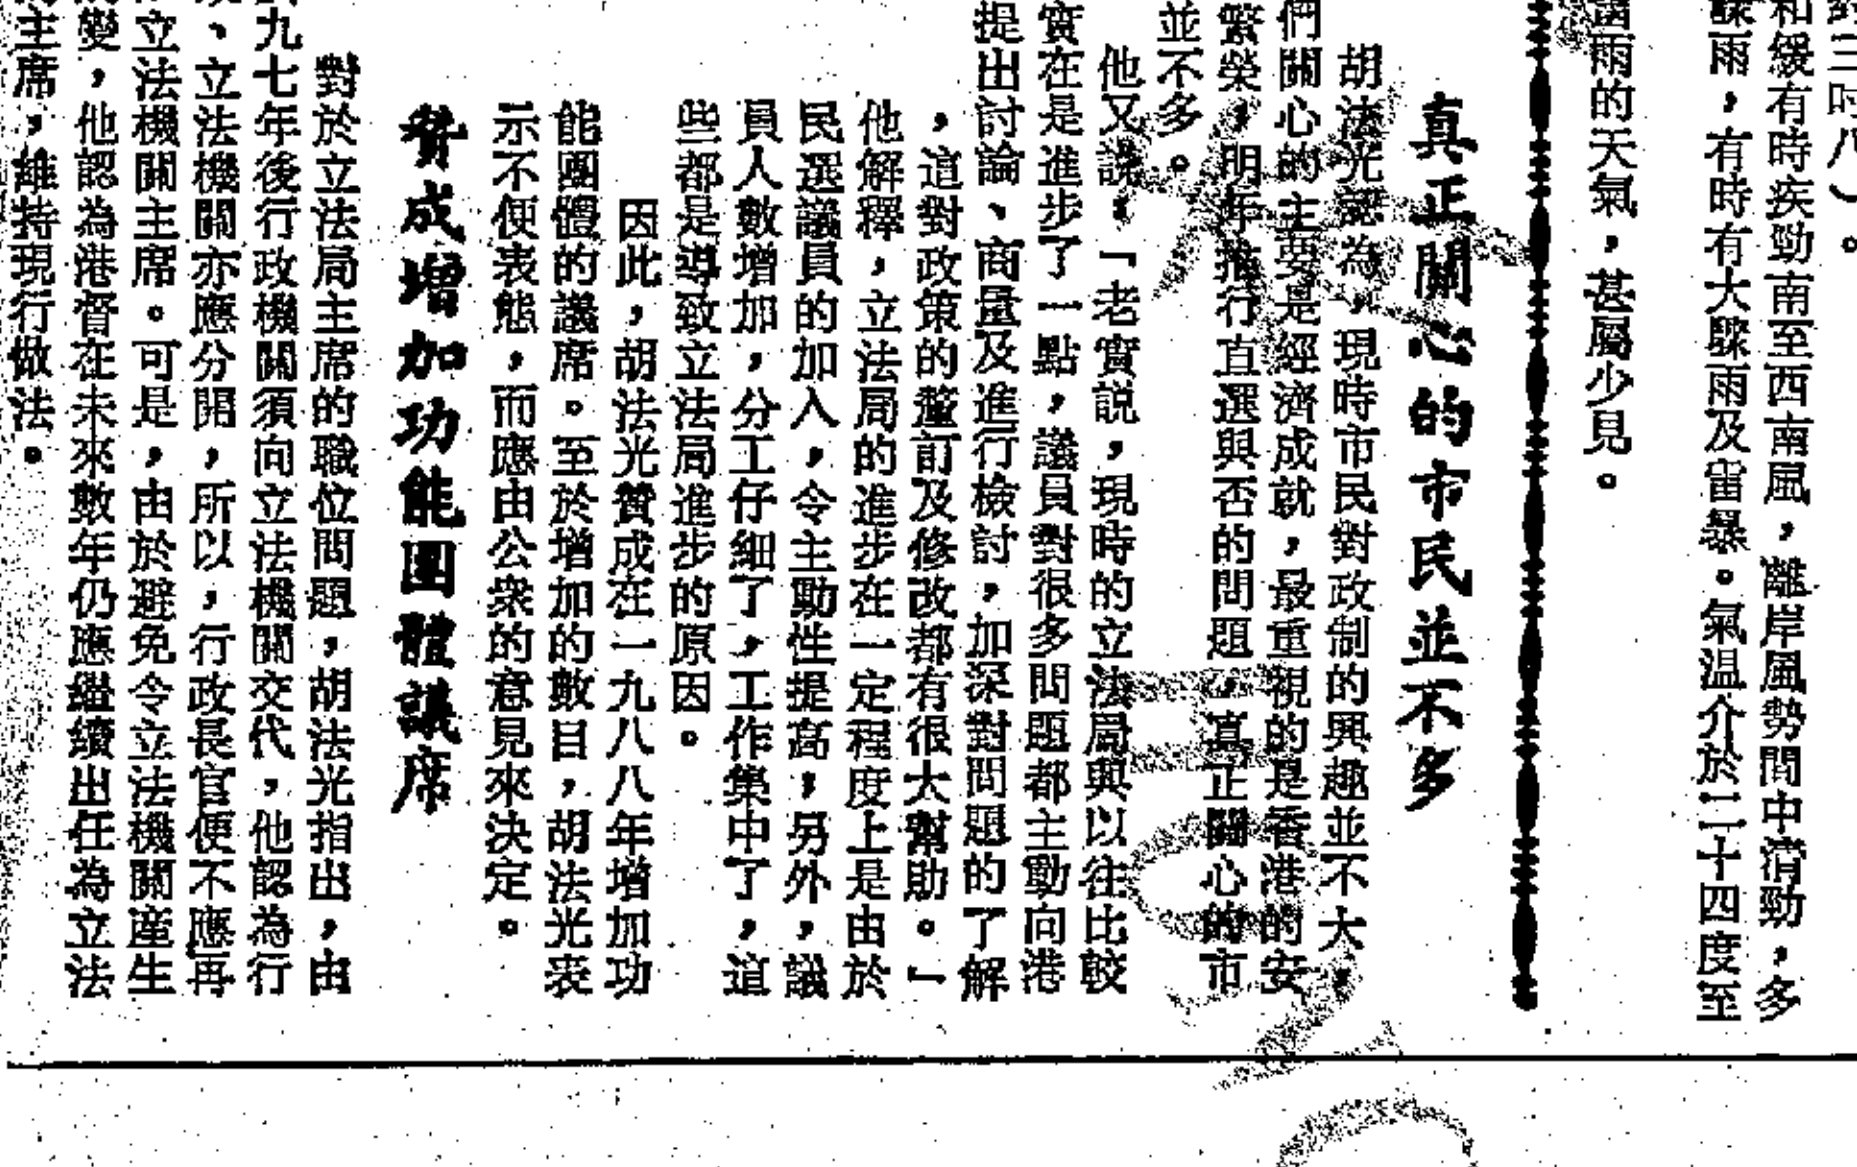 三吋八）。
和緩有時疾勁南至西南風，離岸風勢間中清勁，多
驟雨，有時有大驟雨及雷暴。氣温介於二十四度至
雨的天氣，甚屬少見。
真正關心的市民並不多
胡法光認為，現時市民對政制的興趣並不大，
們關心的主要是經濟成就，最重視的是香港的安
繁榮，明年推行直選與否的問題，真正關心的市
並不多。
他又說：「老實説，現時的立法局與以往比較
實在是進步了一點，議員對很多問題都主動向港
提出討論、商量及進行檢討，加深對問題的了解
，這對政策的釐訂及修改都有很大幫助。」
他解釋，立法局的進步在一定程度上是由於
民選議員的加入，令主動性提高，另外，議
員人數增加，分工仔細了，工作集中了，這
些都是導致立法局進步的原因。
因此，胡法光贊成在一九八八年增加功
能團體的議席。至於增加的數目，胡法光表
示不便表態，而應由公衆的意見來決定。
贊成增加功能團體議席
對於立法局主席的職位問題，胡法光指出，由
九七年後行政機關須向立法機關交代，他認為行
、立法機關亦應分開，所以，行政長官便不應再
立法機關主席。可是，由於避免令立法機關産生
變，他認為港督在未來數年仍應繼續出任為立法
主席，維持現行做法。